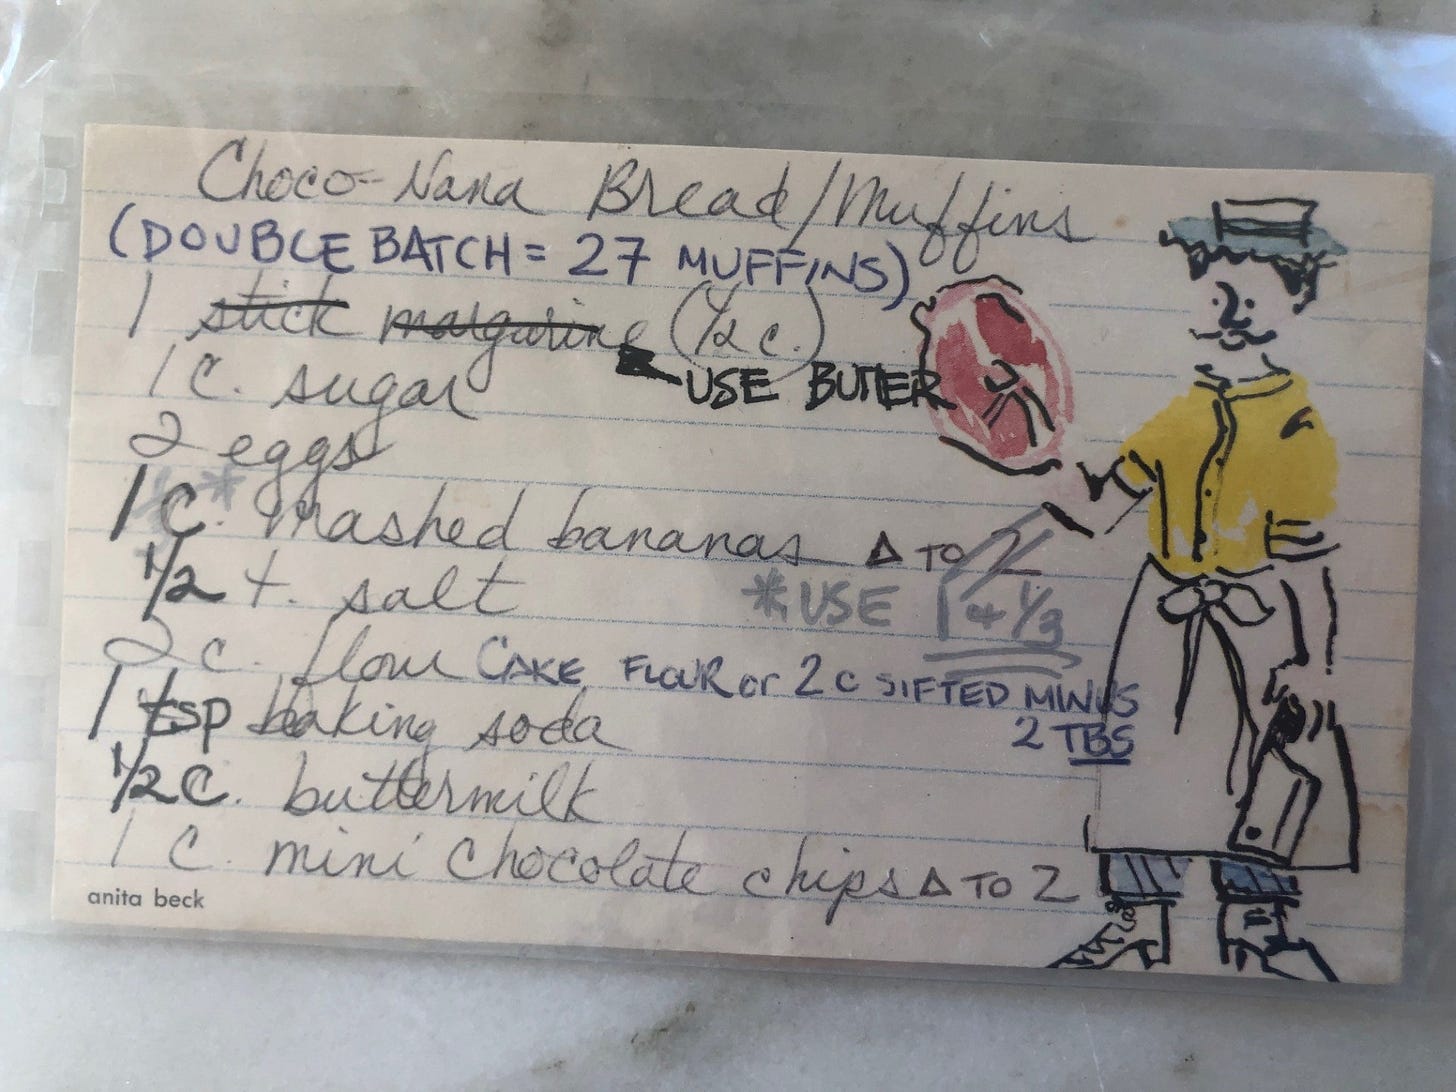 Choco-Nana Bread/Muffins
(DOUBLE BATCH = 27 MUFFINS)
1 stick margarine (1/2 c.)
USE BUTTER
1 C. sugar
2 eggs
1 C.* mashed bananas Δ TO 2
*USE 1 + 1/3
1/2 t. salt
2 c. flour CAKE FLOUR or 2 c SIFTED MINUS
2 TBS
1 tsp baking soda
1/2 C. buttermilk
1 C. mini chocolate chips Δ TO 2
anita beck